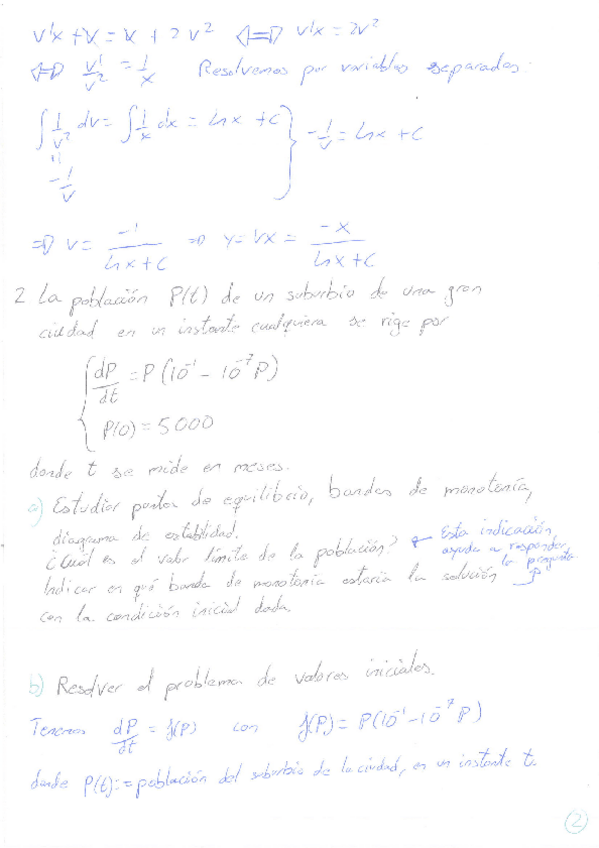 v'x + v = v + 2v² ⇐⇒ v'x = 2v²
⇐⇒ v'/v² = 1/x Resolvemos por variables separadas.
∫ 1/v² dv = ∫ 1/x dx = Ln x + C } -1/v = Ln x + C
=
-1/v
⇒ v = -1/(Ln x + C) ⇒ y = vx = -x/(Ln x + C)
2 La población P(t) de un suburbio de una gran
ciudad en un instante cualquiera se rige por
{ dP/dt = P(10⁻¹ - 10⁻⁷P)
P(0) = 5000
donde t se mide en meses.
a) Estudiar puntos de equilibrio, bandas de monotonía,
diagrama de estabilidad.
¿Cuál es el valor límite de la población? ← Esta indicación
ayuda a responder
la pregunta
Indicar en qué banda de monotonía estaría la solución
con la condición inicial dada.
b) Resolver el problema de valores iniciales.
Tenemos dP/dt = f(P) con f(P) = P(10⁻¹ - 10⁻⁷P)
donde P(t) := población del suburbio de la ciudad, en un instante t.
2